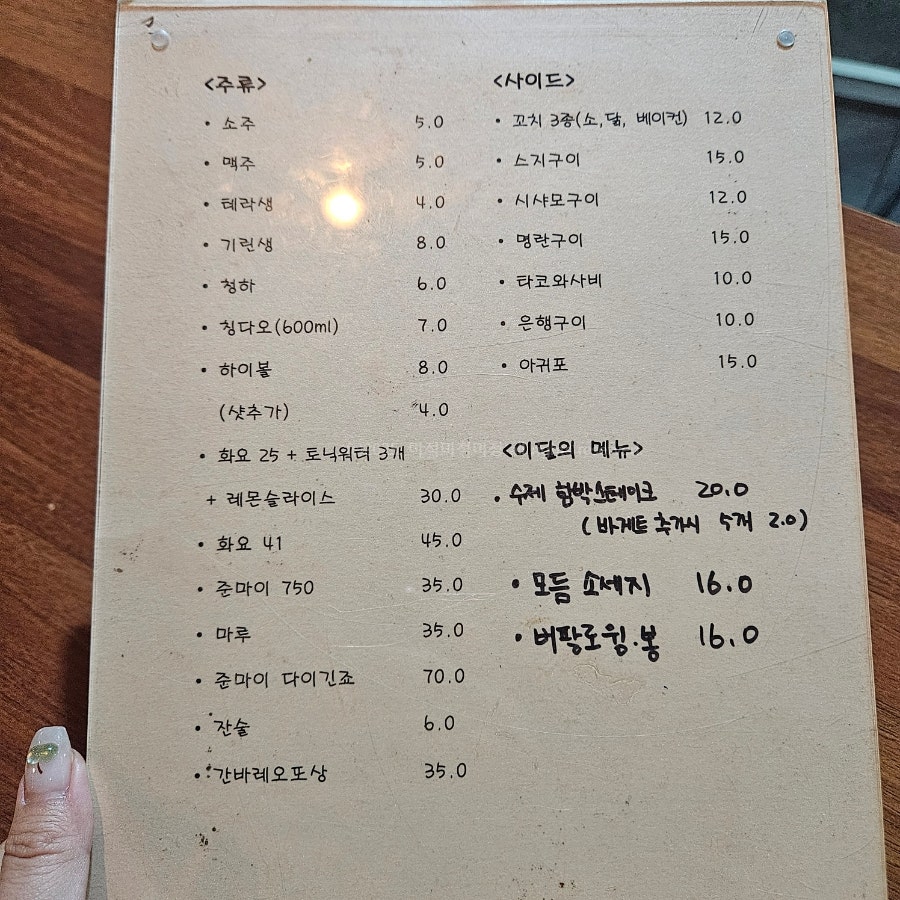 <주류>
• 소주 5.0
• 맥주 5.0
• 테라생 4.0
• 기린생 8.0
• 청하 6.0
• 칭다오(600ml) 7.0
• 하이볼 8.0
(샷추가) 4.0
• 화요 25 + 토닉워터 3개
+ 레몬슬라이스 30.0
• 화요 41 45.0
• 준마이 750 35.0
• 마루 35.0
• 준마이 다이긴죠 70.0
• 잔술 6.0
• 간바레오또상 35.0
<사이드>
• 꼬치 3종(소,닭, 베이컨) 12.0
• 스지구이 15.0
• 시샤모구이 12.0
• 명란구이 15.0
• 타코와사비 10.0
• 은행구이 10.0
• 아귀포 15.0
<이달의 메뉴>
• 수제 함박스테이크 20.0
(바게트 추가시 5개 2.0)
• 모듬 소세지 16.0
• 버팔로윙·봉 16.0